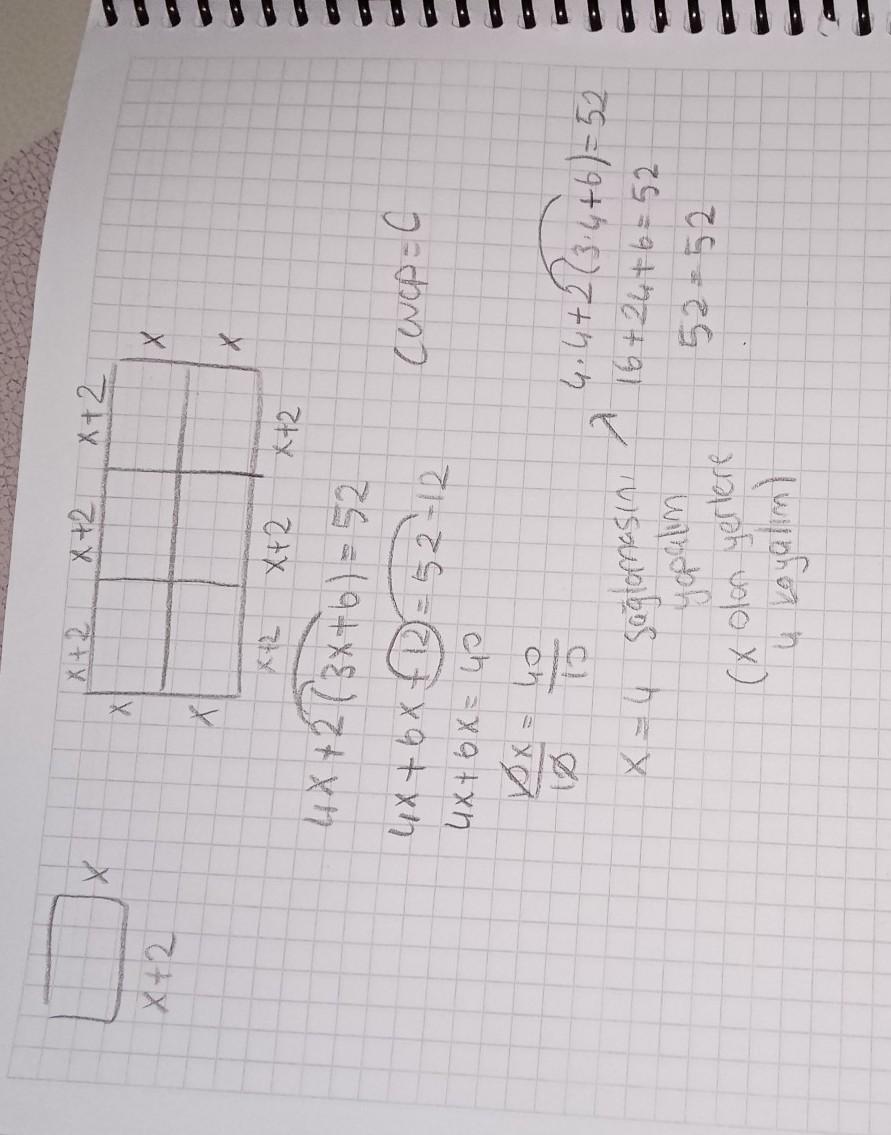 x
x+2
x+2 x+2 x+2
x x
x x
x+2 x+2 x+2
4x+2(3x+6)=52
4x+6x+12=52-12
4x+6x=40
Cevap=C
10x = 40
10 10
x=4 sağlamasını
yapalım
(x olan yerlere
4 koyalım)
4.4+2(3.4+6)=52
16+24+6=52
52=52